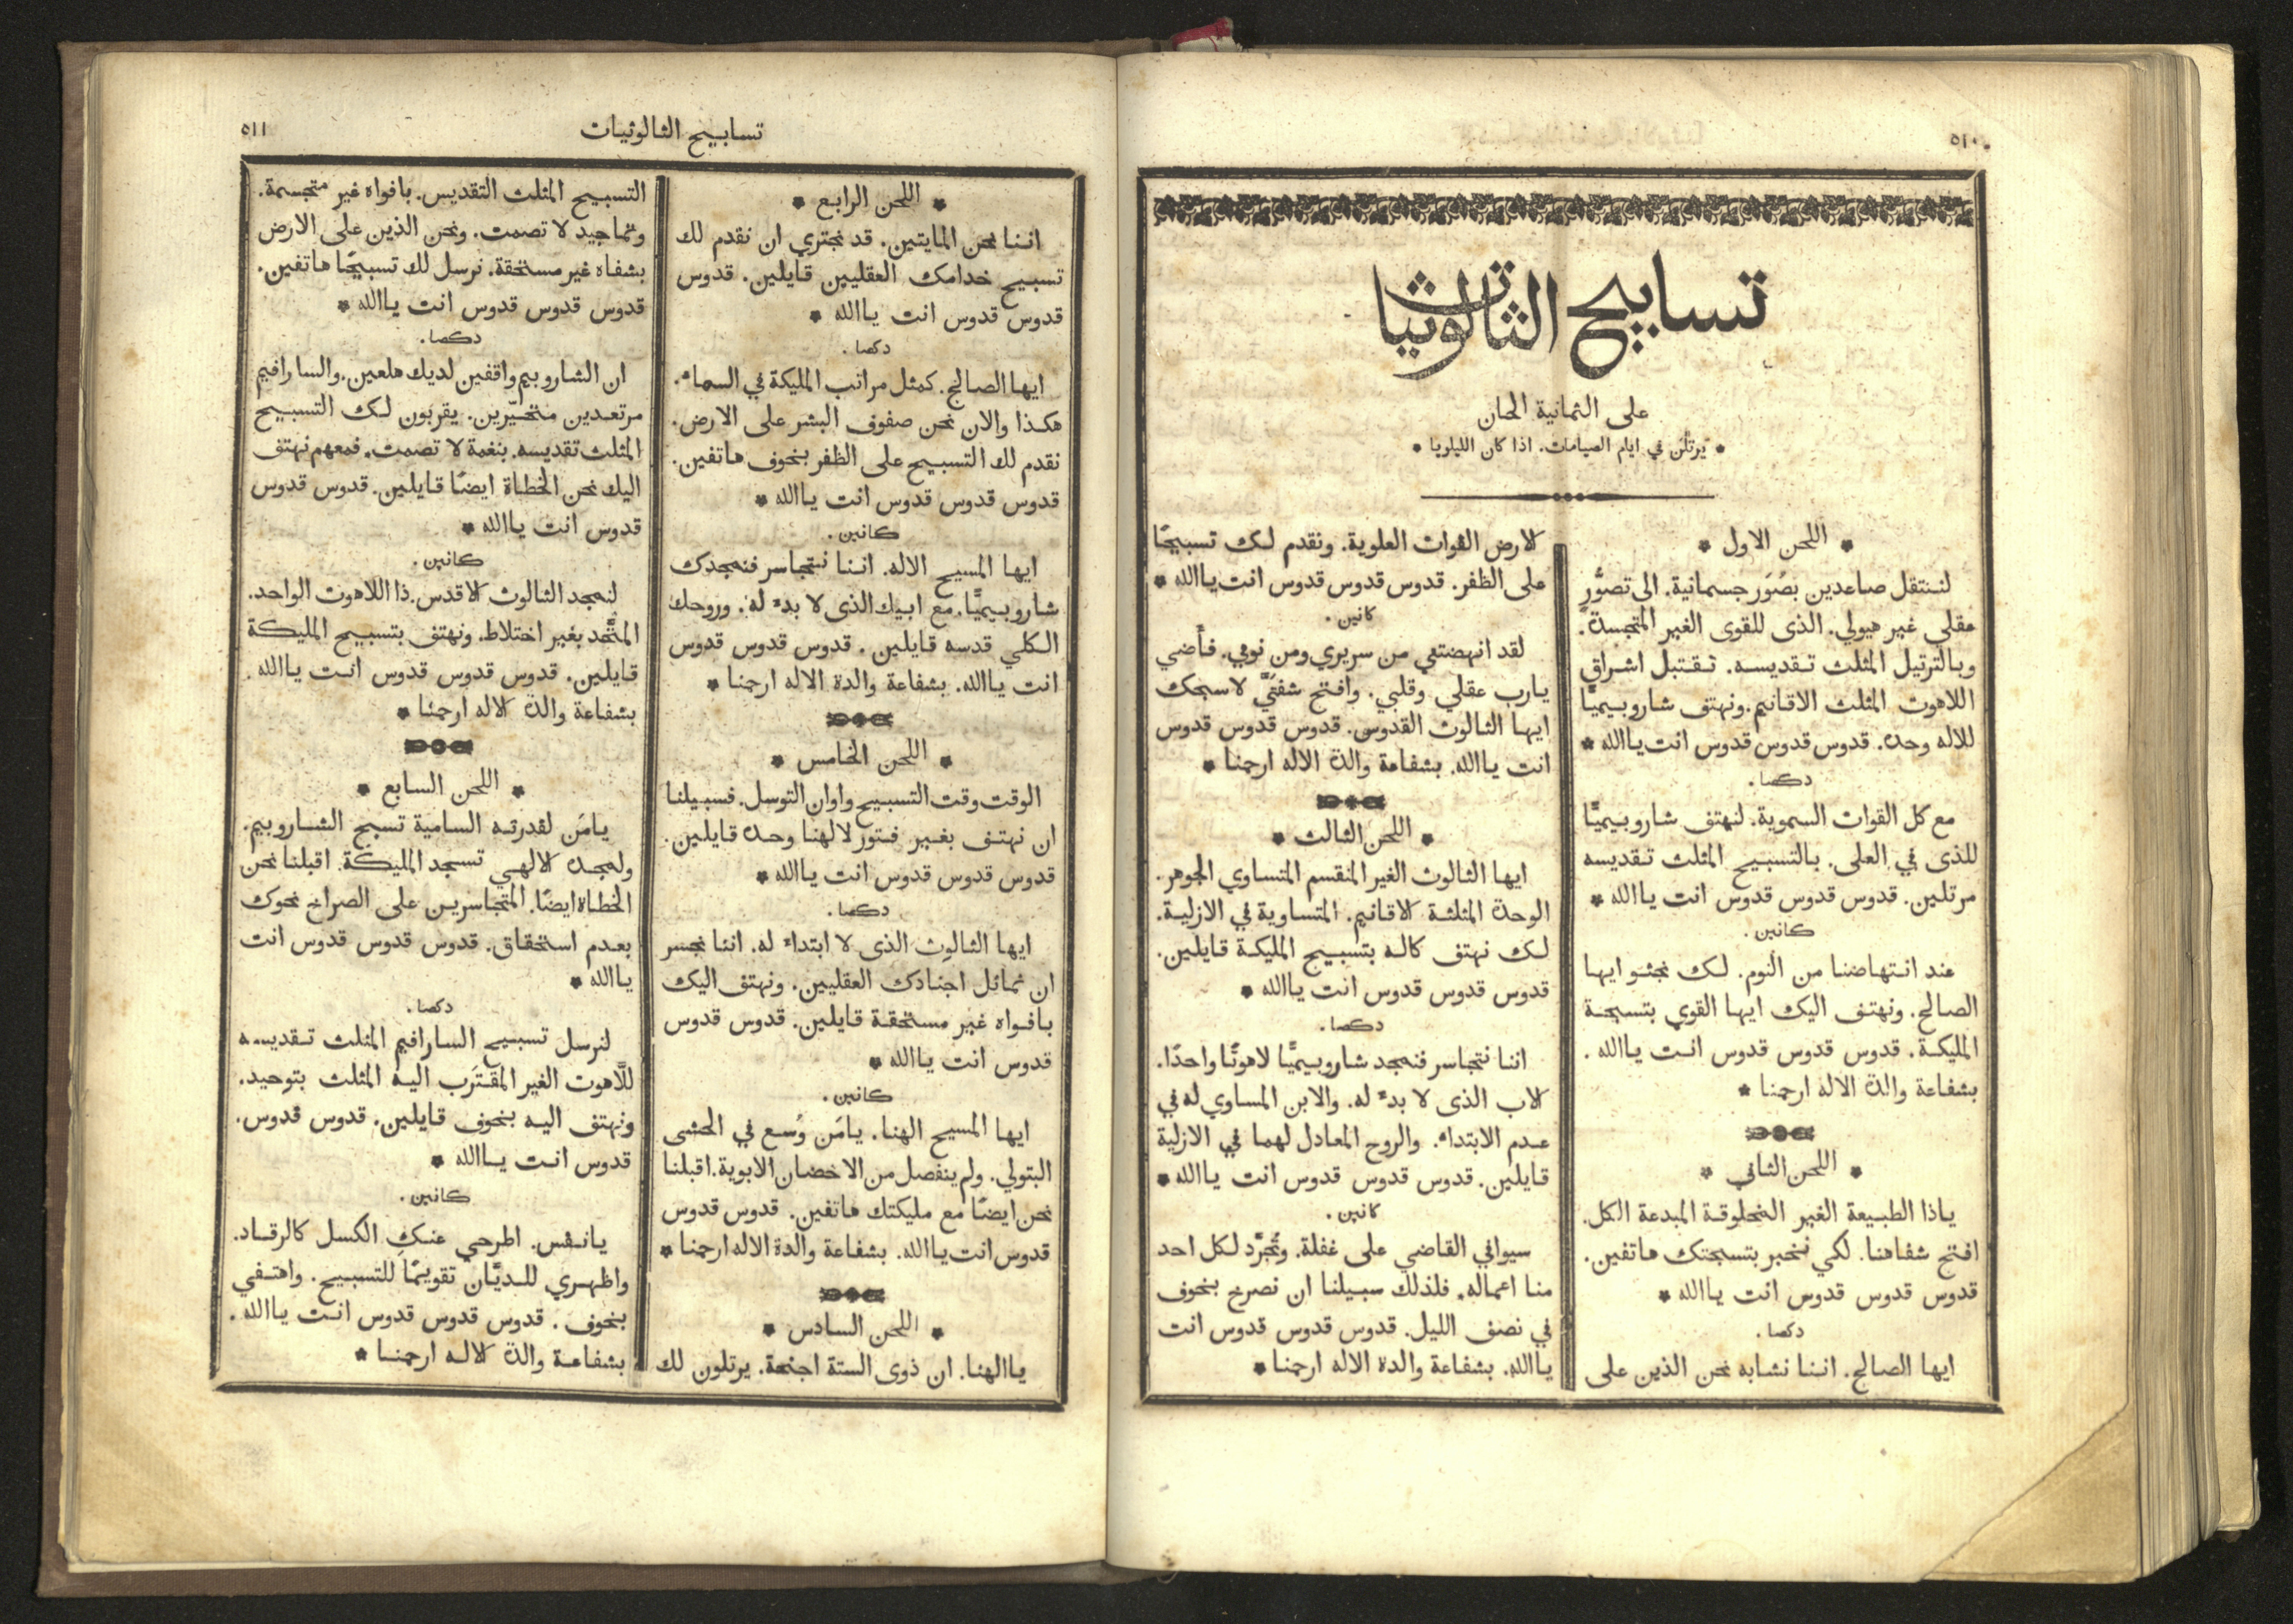 ٥١٠
تسابيح الثالوثيات
على الثمانية الحان
* يرتلن في ايام الصيامات. اذا كان الليلويا *
* اللحن الاول *
لننتقل صاعدين بصُوَر جسمانية. الى تصوُّرٍ
عقلي غير هيولي. الذى للقوى الغير المتجسدة.
وبالترتيل المثلث تقديسه. تقتبل اشراق
اللاهوت المثلث الاقانيم. ونهتف شاروبيميًّا
للاله وحده. قدوس قدوس قدوس انت ياالله *
دكصا.
مع كل القوات السموية. لنهتف شاروبيميًّا
للذى في العلى. بالتسبيح المثلث تقديسه
مرتلين. قدوس قدوس قدوس انت ياالله *
كانين.
عند انتهاضنا من النوم. لك نجثو ايها
الصالح. ونهتف اليك ايها القوي بتسبحة
المليكة. قدوس قدوس قدوس انت ياالله.
بشفاعة والدة الاله ارحمنا *
* اللحن الثاني *
ياذا الطبيعة الغير المخلوقة المبدعة الكل.
افتح شفاهنا. لكي نخبر بتسبحتك هاتفين.
قدوس قدوس قدوس انت ياالله *
دكصا.
ايها الصالح. اننا نشابه نحن الذين على
الارض القوات العلوية. ونقدم لك تسبيحًا
على الظفر. قدوس قدوس قدوس انت ياالله *
كانين.
لقد انهضتني من سريري ومن نومي. فأضي
يارب عقلي وقلبي. وافتح شفتَيَّ لاسبحك
ايها الثالوث القدوس. قدوس قدوس قدوس
انت ياالله. بشفاعة والدة الاله ارحمنا *
* اللحن الثالث *
ايها الثالوث الغير المنقسم المتساوي الجوهر.
الوحدة المثلثة الاقانيم. المتساوية في الازلية.
لك نهتف كاله بتسبيح المليكة قايلين.
قدوس قدوس قدوس انت ياالله *
دكصا.
اننا نتجاسر فنمجد شاروبيميًّا لاهوتًا واحدًا.
الاب الذى لا بدء له. والابن المساوي له في
عدم الابتداء. والروح المعادل لهما في الازلية
قايلين. قدوس قدوس قدوس انت ياالله *
كانين.
سيوافي القاضي على غفلة. وتُجرَّد لكل احد
منا اعماله. فلذلك سبيلنا ان نصرخ بخوف
في نصف الليل. قدوس قدوس قدوس انت
ياالله. بشفاعة والدة الاله ارحمنا *
تسابيح الثالوثيات
٥١١
* اللحن الرابع *
اننا نحن المايتين. قد نجتري ان نقدم لك
تسبيح خدامك العقليين قايلين. قدوس
قدوس قدوس انت ياالله *
دكصا.
ايها الصالح. كمثل مراتب المليكة في السماء.
هكذا والان نحن صفوف البشر على الارض.
نقدم لك التسبيح على الظفر بخوف هاتفين.
قدوس قدوس قدوس انت ياالله *
كانين.
ايها المسيح الاله. اننا نتجاسر فنمجدك
شاروبيميًّا. مع ابيك الذى لا بدء له. وروحك
الكلي قدسه قايلين. قدوس قدوس قدوس
انت ياالله. بشفاعة والدة الاله ارحمنا *
* اللحن الخامس *
الوقت وقت التسبيح واوان التوسل. فسبيلنا
ان نهتف بغير فتور لالهنا وحده قايلين.
قدوس قدوس قدوس انت ياالله *
دكصا.
ايها الثالوث الذى لا ابتداء له. اننا نجسر
ان نماثل اجنادك العقليين. ونهتف اليك
بافواه غير مستحقة قايلين. قدوس قدوس
قدوس انت ياالله *
كانين.
ايها المسيح الهنا. يامَن وُسع في الحشى
البتولي. ولم ينفصل من الاحضان الابوية. اقبلنا
نحن ايضًا مع مليكتك هاتفين. قدوس قدوس
قدوس انت ياالله. بشفاعة والدة الاله ارحمنا *
* اللحن السادس *
ياالهنا. ان ذوى الستة اجنحة. يرتلون لك
التسبيح المثلث التقديس. بافواه غير متجسمة.
وتماجيد لا تصمت. ونحن الذين على الارض
بشفاه غير مستحقة. نرسل لك تسبيحًا هاتفين.
قدوس قدوس قدوس انت ياالله *
دكصا.
ان الشاروبيم واقفين لديك هلعين. والسارافيم
مرتعدين متحيّرين. يقربون لك التسبيح
المثلث تقديسه. بنغمة لا تصمت. فمعهم نهتف
اليك نحن الخطاة ايضًا قايلين. قدوس قدوس
قدوس انت ياالله *
كانين.
لنمجد الثالوث الاقدس. ذا اللاهوت الواحد.
المتَّحد بغير اختلاط. ونهتف بتسبيح المليكة
قايلين. قدوس قدوس قدوس انت ياالله.
بشفاعة والدة الاله ارحمنا *
* اللحن السابع *
يامَن لقدرته السامية تسبح الشاروبيم.
ولمجده الالهي تسجد المليكة. اقبلنا نحن
الخطاة ايضًا. المتجاسرين على الصراخ نحوك
بعدم استحقاق. قدوس قدوس قدوس انت
ياالله *
دكصا.
لنرسل تسبيح السارافيم المثلث تقديسه
للَّاهوت الغير المقترَب اليه المثلث بتوحيد.
ونهتف اليه بخوف قايلين. قدوس قدوس.
قدوس انت ياالله *
كانين.
يانفس. اطرحي عنكِ الكسل كالرقاد.
واظهري للديَّان تقويمًا للتسبيح. واهتفي
بخوف. قدوس قدوس قدوس انت ياالله.
بشفاعة والدة الاله ارحمنا *